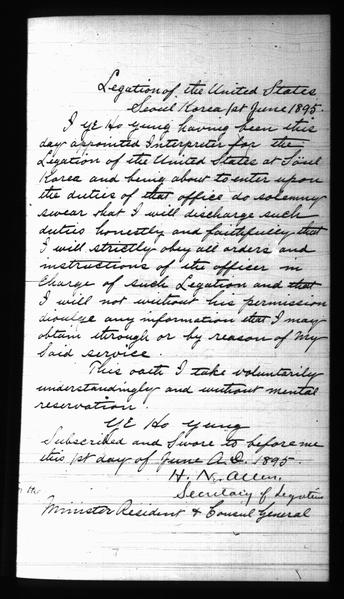 Legation of the United States
Seoul Korea 1st June 1895.
I Ye Ho Yung having been this
day appointed Interpreter for the
Legation of the United States at Söul
Korea and being about to enter upon
the duties of that office do solemny
swear that I will discharge such
duties honestly and faithfully that
I will strictly obey all orders and
instructions of the officer in
Charge of such Legation and that
I will not without his permission
divulge any information that I may
obtain through or by reason of my
said service.
This oath I take voluntarily
understandingly and without mental
reservation.
Ye Ho Yung
Subscribed and Swore to before me
this 1st day of June A.D. 1895.
H. N. Allen.
Secretary of Legation
Minister Resident & Consul General